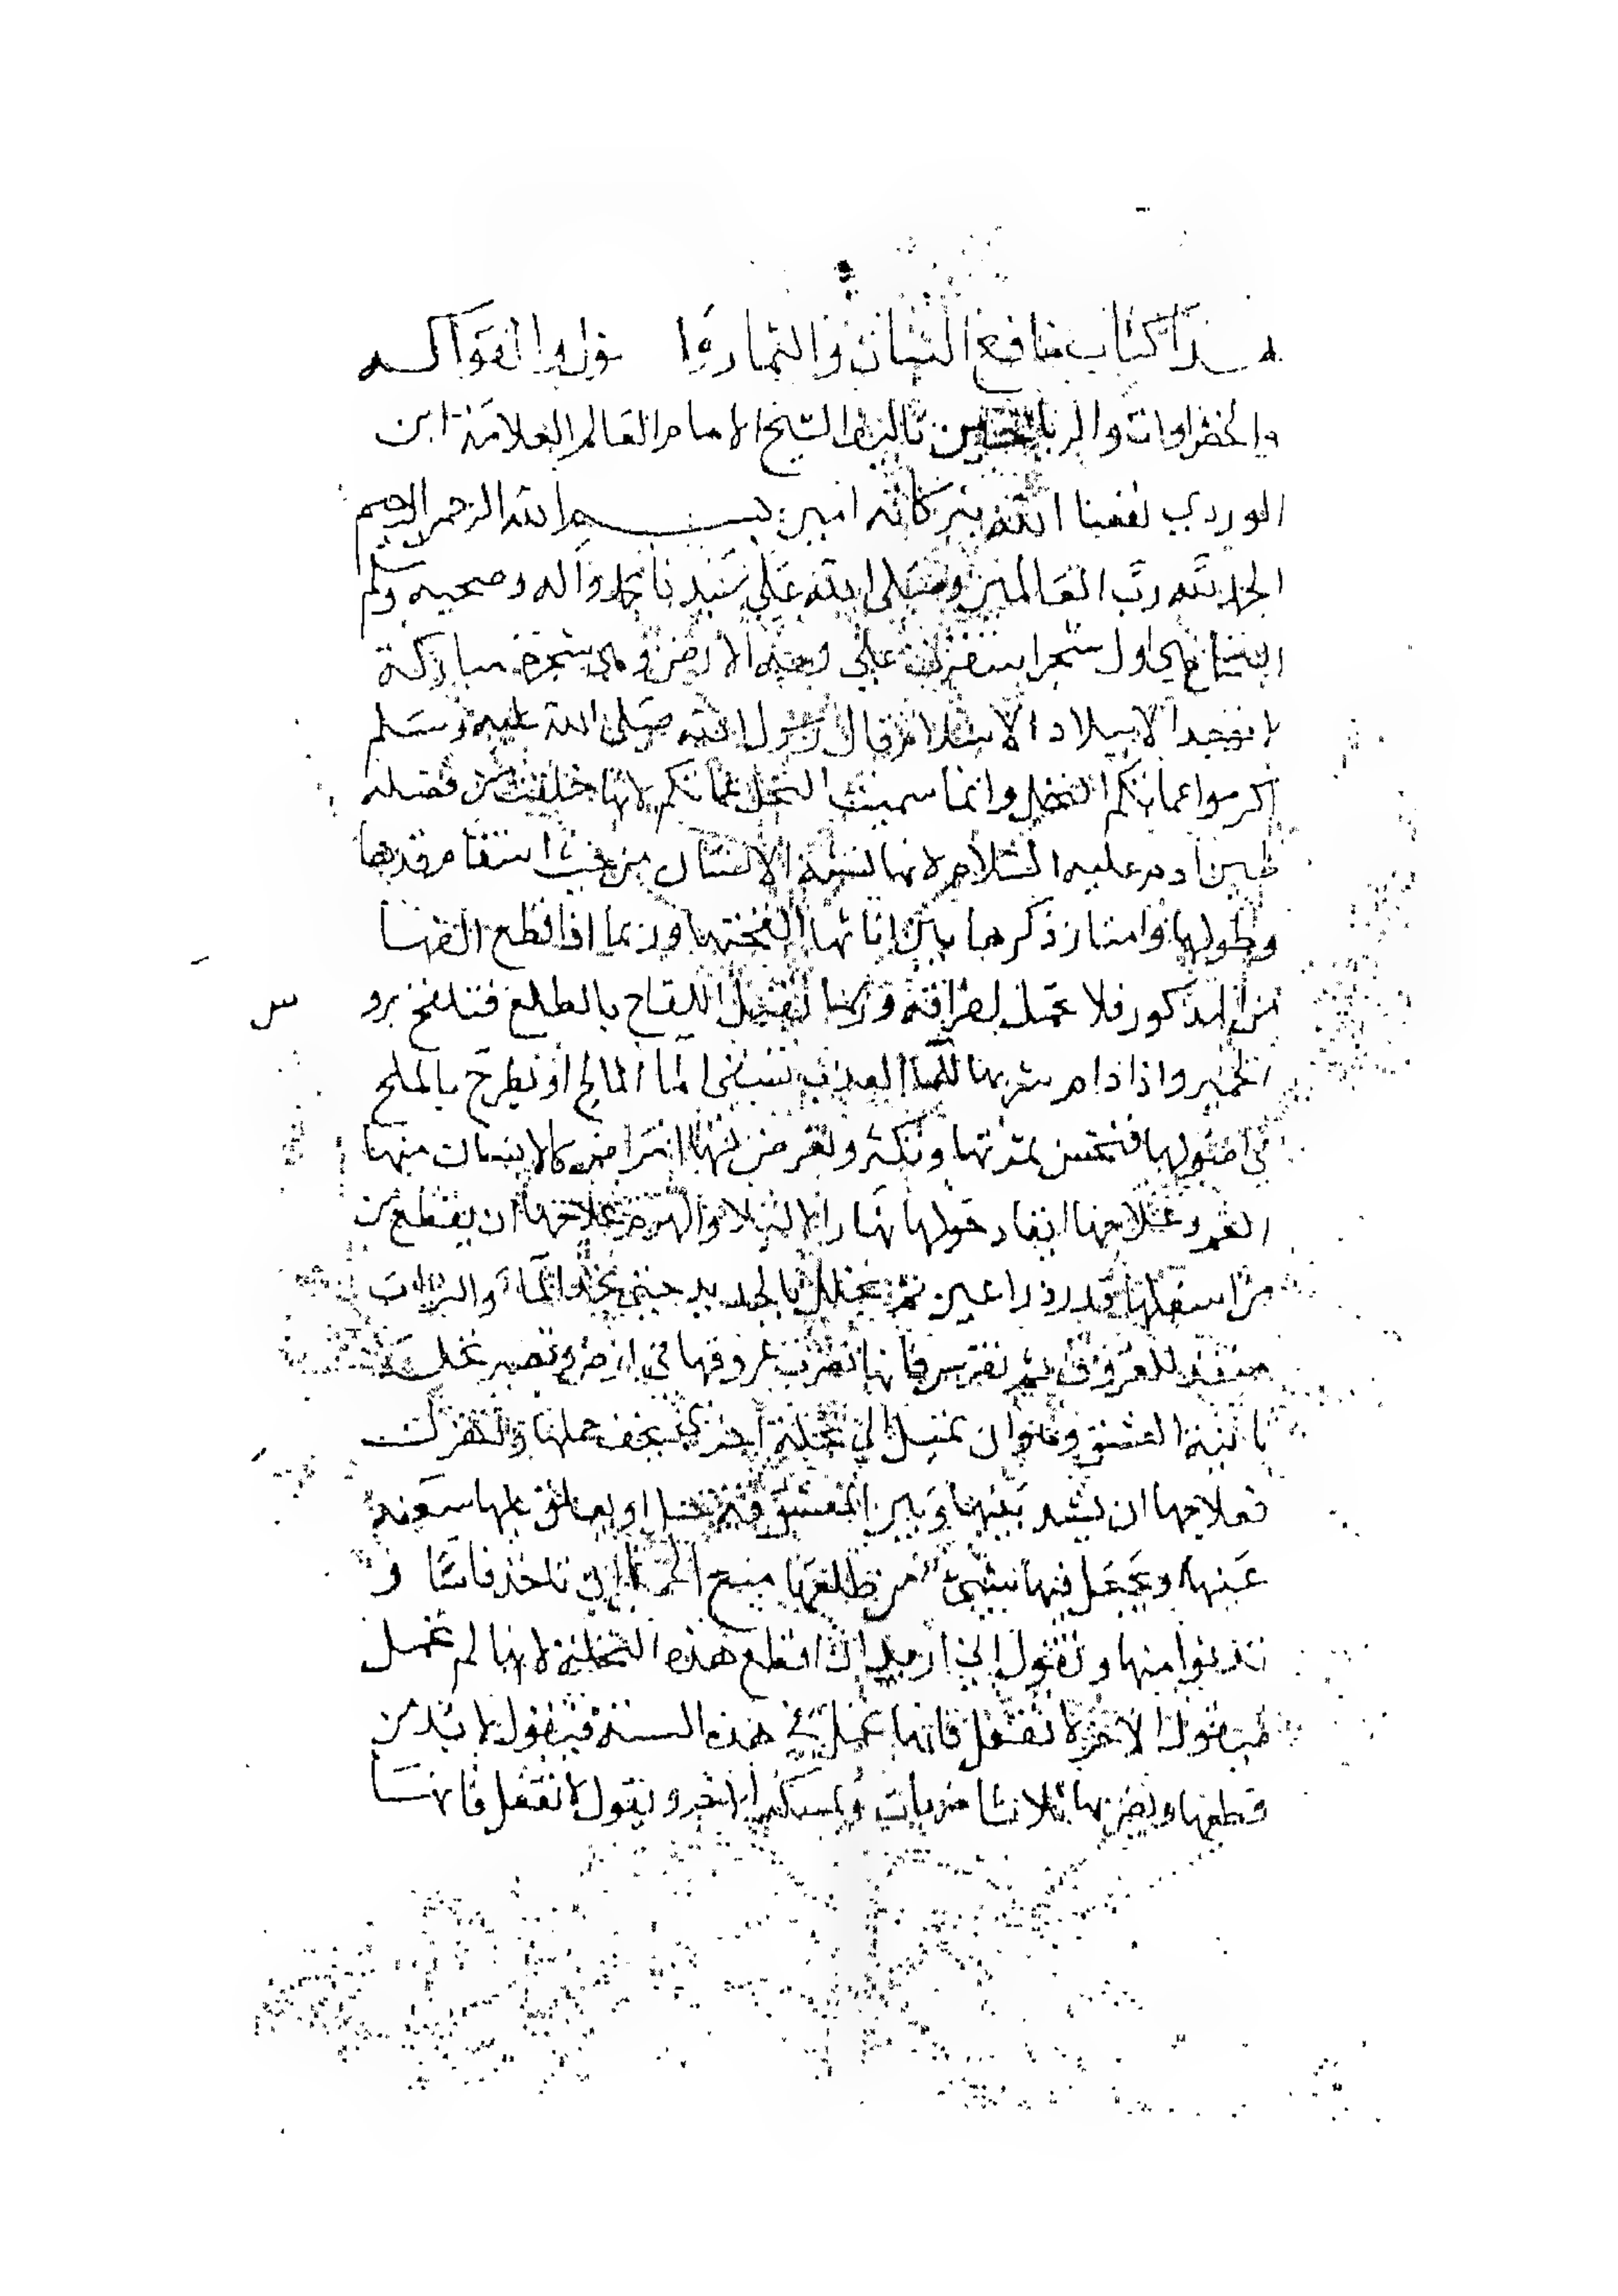 هذا كتاب منافع النبات والثمار والبقول والفواكه
والخضراوات والرياحين تاليف الشيخ الامام العالم العلامة ابن
الوردي نفعنا الله ببركاته امين بسم الله الرحمن الرحيم
الحمد لله رب العالمين وصلى الله على سيدنا محمد واله وصحبه وسلم
اول شجر استقرت على وجه الارض وهي شجرة مباركة
لا توجد الا ببلاد الاسلام قال رسول الله صلى الله عليه وسلم
اكرموا عماتكم النخل وانما سميت النخل عماتكم لانها خلقت من فضلة
طين ادم عليه السلام لانها تشبه الانسان من حيث استقامة قدها
وطولها وامتياز ذكرها من اناثها
من المذكور فلا تحمل لفراقه وربما اللقاح بالطلع برو
الخمير واذا دام شربها للماء العذب تسقى الماء المالح او يطرح بالملح
في اصولها فتحسن ثمرتها وتكثر وتعرض لها امراض كالانسان منها
الغم وعلاجها ايقاد حولها نهارا لا ليلا والهرم علاجها ان يقطع من
من اسفلها قدر ذراعين ثم تخلل بالحديد حتى يدخل الماء والتراب
منفذ للعروق ثم تغرس فانها تضرب عروقها في ارض وتصير نخلة
ثانية العشق وهو ان تميل الى نخلة اخرى يخف حملها
فعلاجها ان يشد بينها وبين المعشوقة بحبل او يعلق عليها سعفة
عنها ويجعل فيها شيء من طلعها منع ان تاخذ فاسا و
تدنوا منها وتقول اني اريد ان اقطع هذه النخلة لانها لم تحمل
فيقول الاخر لا تفعل فانها تحمل في هذه السنة فيقول لا بد من
قطعها ويضربها ثلاثا ضربات ويمسكه الاخر ويقول لا تفعل فانها